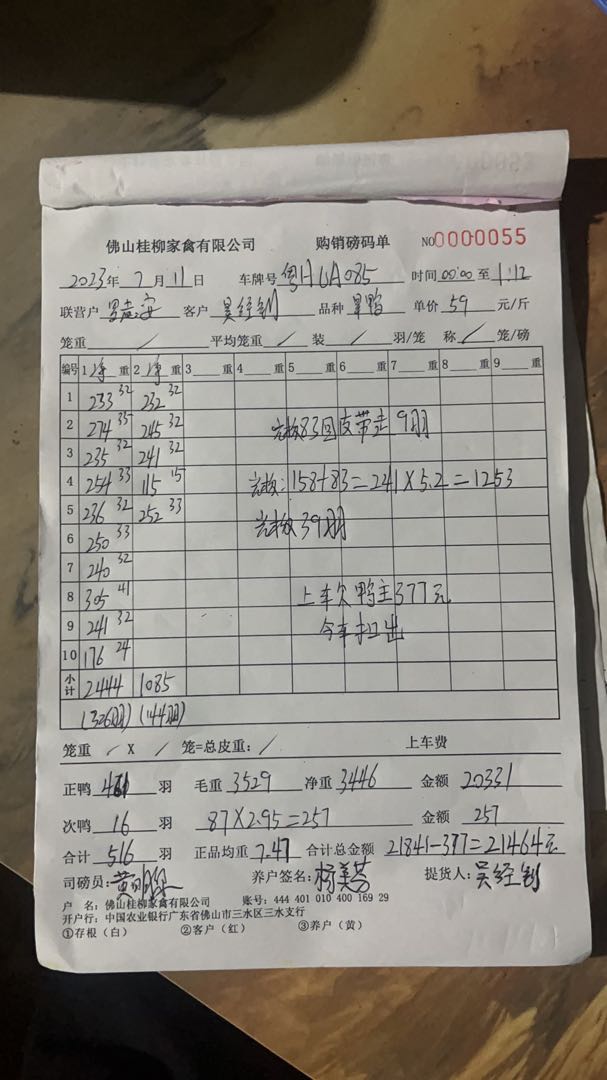 佛山桂柳家禽有限公司 购销磅码单 NO0000055
2023年 7 月 11 日 车牌号 粤H 085 时间 00:00 至 1:12
联营户 客户 吴经钊 品种 单价 59 元/斤
笼重 / 平均笼重 / 装 / 羽/笼 称 / 笼/磅
编号 1净重 2净重 3 重 4 重 5 重 6 重 7 重 8 重 9 重
1 233 32 232 32
2 274 35 245 32 83回皮带走 9羽
3 235 32 241 32
4 254 33 115 15 158+83=241×5.2=1253
5 236 32 252 33 39羽
6 250 33
7 240 32
8 305 41 上车欠鸭主377元
9 241 32 今车扣出
10 176 24
小计 2444 1085
(326羽) (144羽)
笼重 / X / 笼=总皮重: / 上车费
正鸭 461 羽 毛重 3529 净重 3446 金额 20331
次鸭 16 羽 87×2.95=257 金额 257
合计 516 羽 正品均重 7.47 合计总金额 21841-377=21464元
司磅员: 黄明 养户签名: 杨美 提货人: 吴经钊
户 名: 佛山桂柳家禽有限公司 账号: 444 401 010 400 169 29
开户行: 中国农业银行广东省佛山市三水区三水支行
①存根(白) ②客户(红) ③养户(黄)